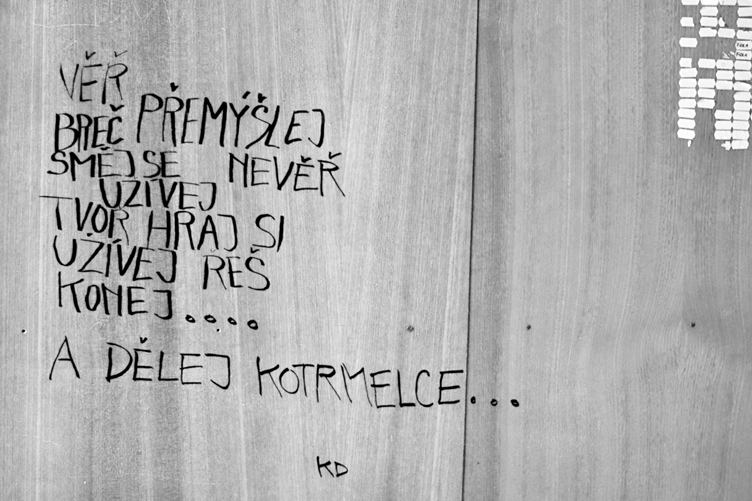 VĚŘ
BREČ PŘEMÝŠLEJ
SMĚJ SE NEVĚŘ
UŽÍVEJ
TVOŘ HRAJ SI
UŽÍVEJ ŘEŠ
KONEJ....
A DĚLEJ KOTRMELCE...
KD